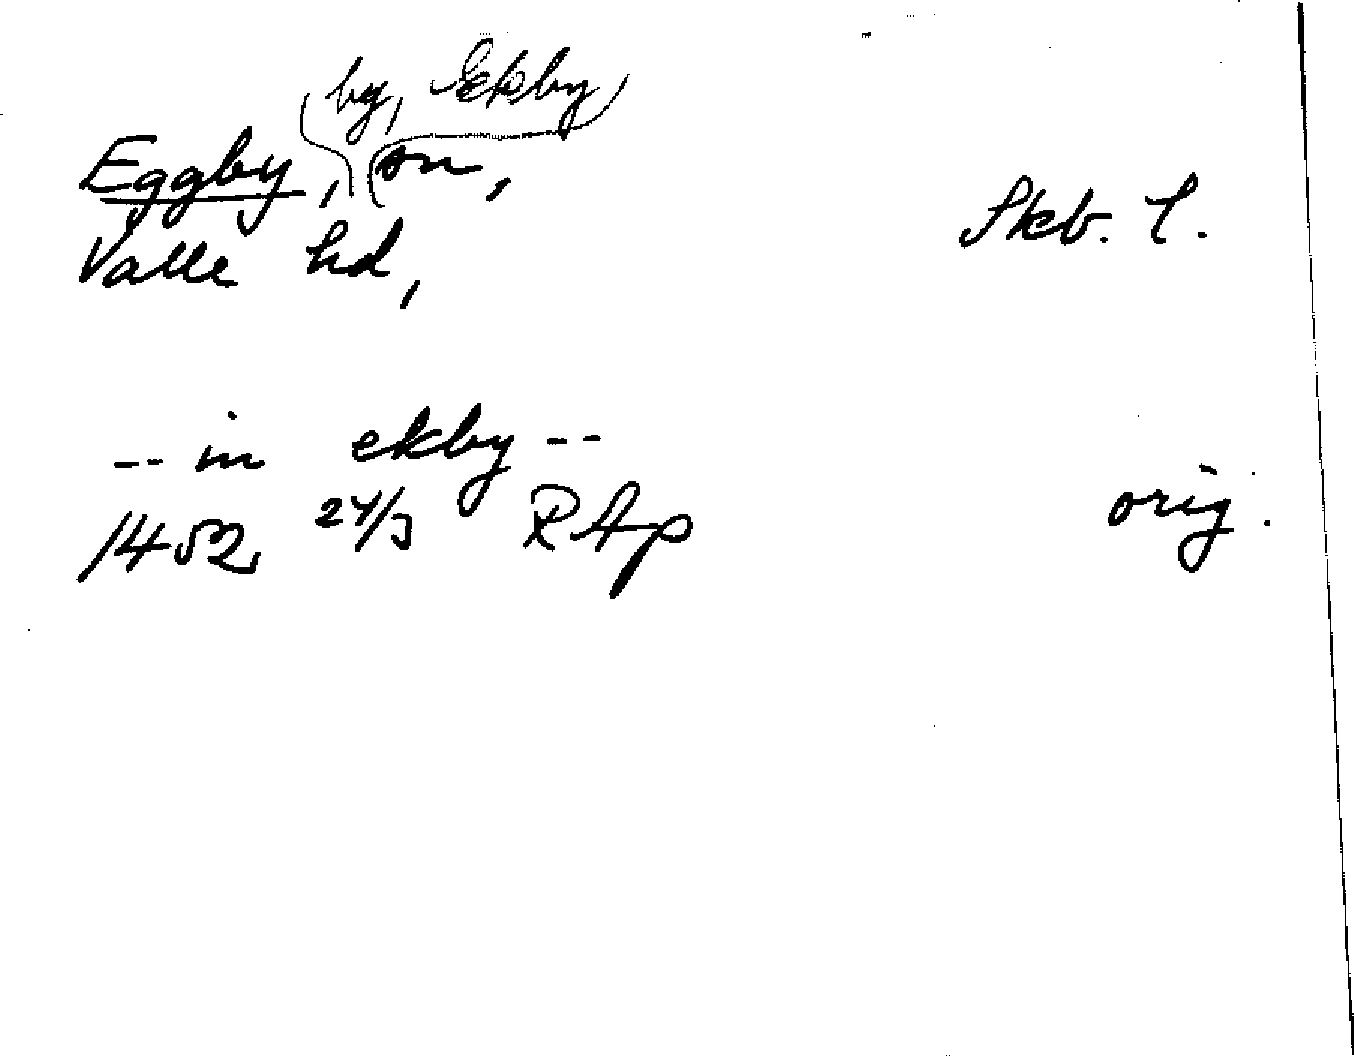 by, Ekby
Eggby, sn,
Skb. l.
Valle hd,
-- in ekby --
1452 24/3 RAp
orig.